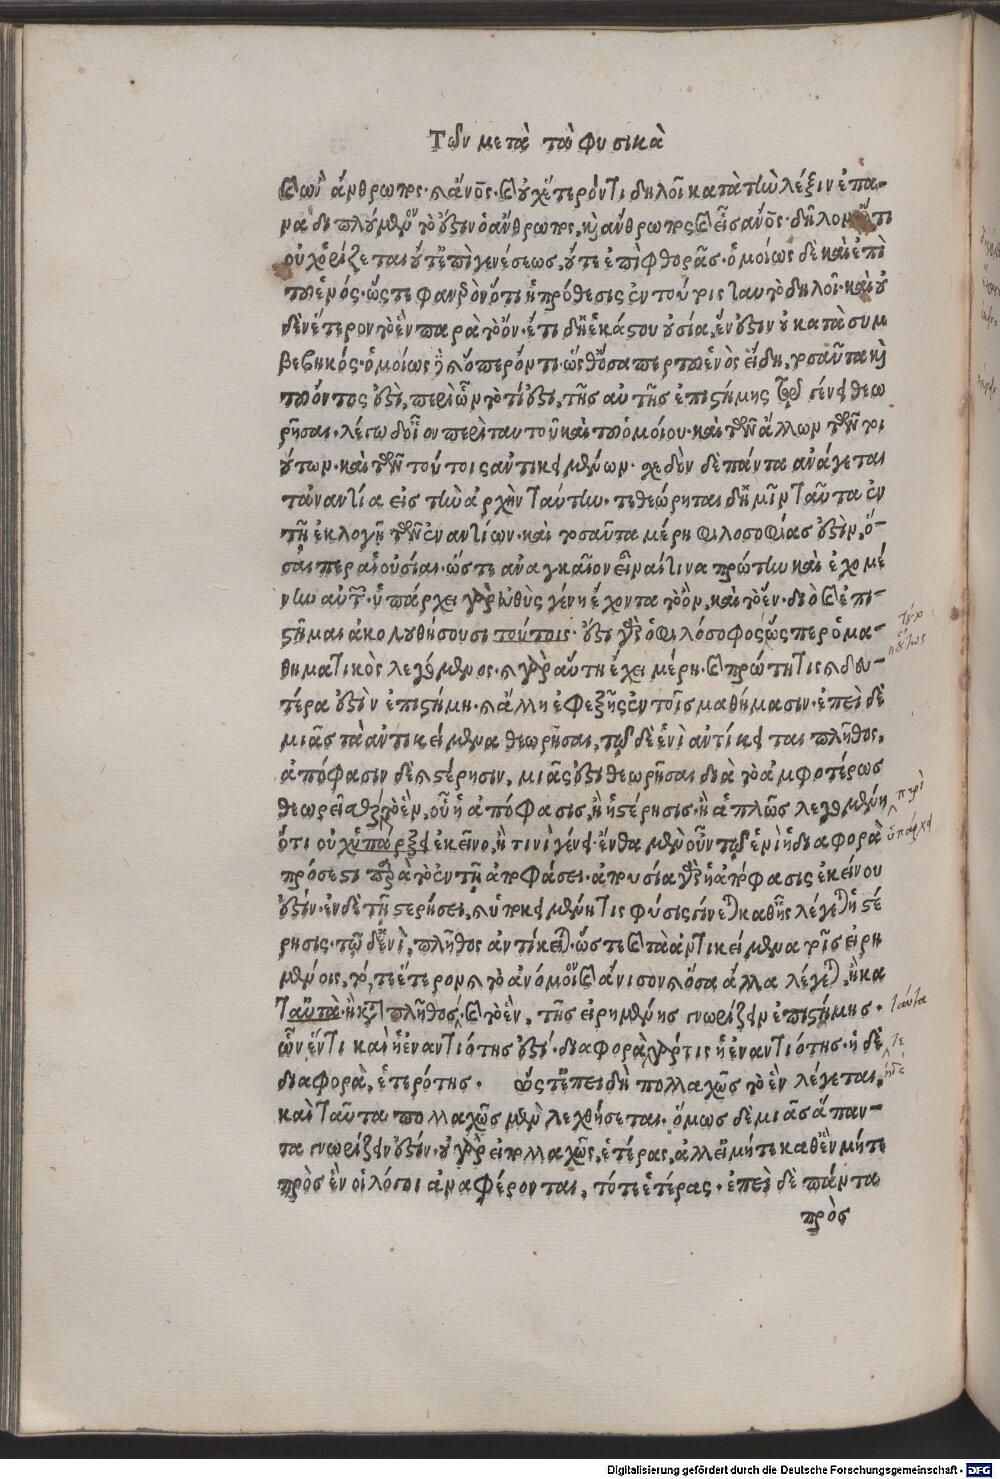 Τῶν μετὰ τὰ φυσικὰ
καὶ ὢν ἄνθρωπος. καὶ ἄνος. καὶ οὐχ ἕτερόν τι δηλοῖ κατὰ τὴν λέξιν ἐπα-
ναδιπλούμενον τὸ ἔστιν ὁ ἄνθρωπος, καὶ ἄνθρωπος καὶ εἷς ἄνος. δῆλον δ' ὅτι
οὐ χωρίζεται οὔτ' ἐπὶ γενέσεως, οὔτε ἐπὶ φθορᾶς. ὁμοίως δὲ καὶ ἐπὶ
τοῦ ἑνός. ὥστε φανερὸν ὅτι ἡ πρόθεσις ἐν τούτοις ταυτὸ δηλοῖ. καὶ οὐ
δὲν ἕτερον τὸ ἓν παρὰ τὸ ὄν. ἔτι δ' ἡ ἑκάστου οὐσία, ἕν ἐστιν οὐ κατὰ συμ
βεβηκός. ὁμοίως δὲ καὶ ὅπερ ὄν τι. ὥσθ' ὅσα περ τοῦ ἑνὸς εἴδη, τοσαῦτα καὶ
τοῦ ὄντος ἐστὶ, περὶ ὧν τὸ τί ἐστι, τῆς αὐτῆς ἐπιστήμης τῷ γένει θεω
ρῆσαι. λέγω δ' οἷον περὶ ταυτοῦ καὶ τοῦ ὁμοίου. καὶ τῶν ἄλλων τῶν τοι
ούτων. καὶ τῶν τούτοις ἀντικειμένων. σχεδὸν δὲ πάντα ἀνάγεται
τἀναντία εἰς τὴν ἀρχὴν ταύτην. τεθεώρηται δ' ἡμῖν ταῦτα ἐν
τῇ ἐκλογῇ τῶν ἐναντίων. καὶ τοσαῦτα μέρη φιλοσοφίας ἐστὶν, ὅ-
σαι περ αἱ οὐσίαι. ὥστε ἀναγκαῖον εἶναί τινα πρώτην καὶ ἐχομέ
νην αὐτῶν. ὑπάρχει γὰρ εὐθὺς γένη ἔχοντα τὸ ὂν, καὶ τὸ ἕν. διὸ καὶ ἐπι-
στῆμαι ἀκολουθήσουσι τούτοις. ἔστι γὰρ ὁ φιλόσοφος, ὥσπερ ὁ μα-
θηματικὸς λεγόμενος. καὶ γὰρ αὕτη ἔχει μέρη. καὶ πρώτη τις καὶ δευ-
τέρα ἐστὶν ἐπιστήμη. καὶ ἄλλη ἐφεξῆς ἐν τοῖς μαθήμασιν. ἐπεὶ δὲ
μιᾶς τὰ ἀντικείμενα θεωρῆσαι, τῷ δὲ ἑνὶ ἀντίκειται πλῆθος,
ἀπόφασιν δὲ καὶ στέρησιν, μιᾶς ἐστι θεωρῆσαι διὰ τὸ ἀμφοτέρως
θεωρεῖσθαι τὸ ἓν, οὗ ἡ ἀπόφασις, ἢ ἡ στέρησις. ἢ ἁπλῶς λεγομένη
περὶ
ὅτι οὐχ ὑπάρξει ἐκεῖνο, ἤ τινι γένει. ἔνθα μὲν οὖν τῷ ἑνὶ ἡ διαφορὰ
ὑπάρχει
πρόσεστι παρὰ τὸ ἐν τῇ ἀποφάσει. ἀπουσία γὰρ ἡ ἀπόφασις ἐκείνου
ἐστίν. ἐν δὲ τῇ στερήσει, καὶ ὑποκειμένη τις φύσις γίνεται καθ' ἧς λέγεται ἡ στέ
ρησις. τῷ δ' ἑνὶ, πλῆθος ἀντίκειται. ὥστε καὶ τὰ ἀντικείμενα τοῖς εἰρη
μένοις, τό, τε ἕτερον καὶ τὸ ἀνόμοιον καὶ ἄνισον καὶ ὅσα ἄλλα λέγεται, ἢ κα
τὰ ταῦτα. ἢ κατὰ πλῆθος, καὶ τὸ ἓν, τῆς εἰρημένης γνωρίζειν ἐπιστήμης.
ταῦτα
ὧν ἕν τι καὶ ἡ ἐναντιότης ἐστί. διαφορὰ γάρ τις ἡ ἐναντιότης. ἡ δὲ
διαφορὰ, ἑτερότης. ὥστ' ἐπειδὴ πολλαχῶς τὸ ἓν λέγεται,
καὶ ταῦτα πολλαχῶς μὲν λεχθήσεται. ὅμως δὲ μιᾶς ἅπαν-
τα γνωρίζειν ἐστίν. οὐ γὰρ εἰ πολλαχῶς, ἑτέρας, ἀλλ' εἰ μήτε καθ' ἓν μήτε
πρὸς ἓν οἱ λόγοι ἀναφέρονται, τότε ἑτέρας. ἐπεὶ δὲ πάντα
πρὸς
Digitalisierung gefördert durch die Deutsche Forschungsgemeinschaft - DFG